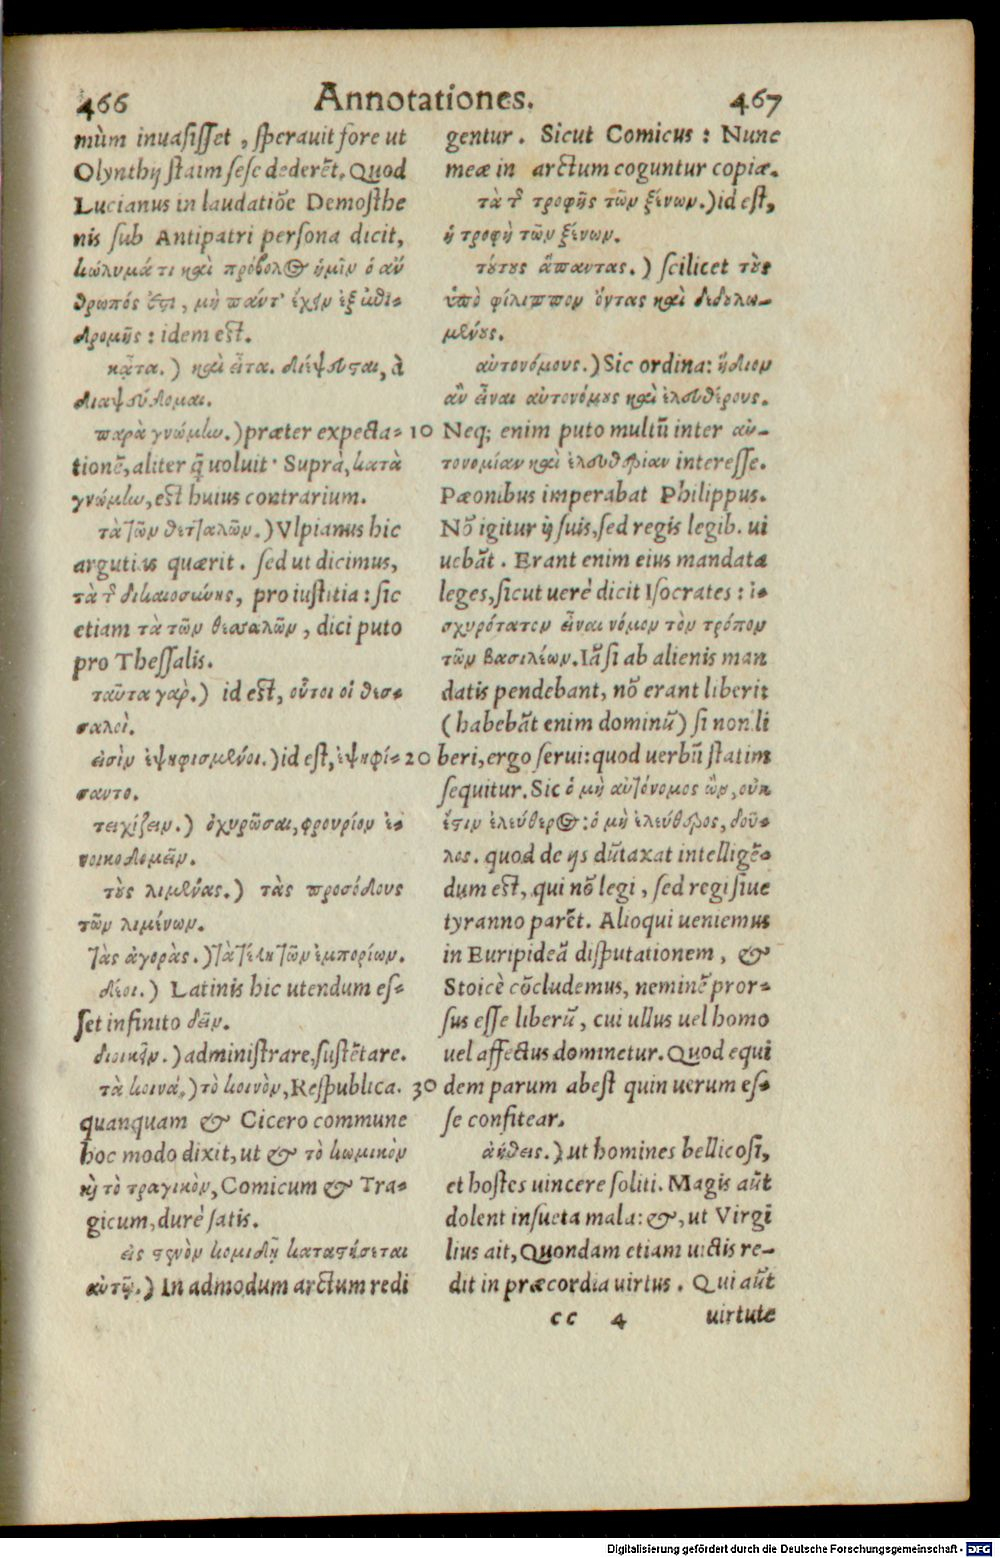 466 Annotationes. 467
mùm inuasisset, sperauit fore ut
Olynthij staim sese dederēt. Quod
Lucianus in laudatiōe Demosthe
nis sub Antipatri persona dicit,
κώλυμά τι καὶ πρόβολος ἡμῖν ὁ ἄν
θρωπός ἐστι, μὴ πάντ' ἔχειν ἐξ ἐπι-
δρομῆς: idem est.
κᾆτα.) καὶ εἶτα. διέψευσται, à
διαψεύδομαι.
παρὰ γνώμην.) præter expecta-
tionē, aliter q̄ uoluit. Suprà, κατὰ
γνώμην, est huius contrarium.
τὰ τῶν θετταλῶν.) Vlpianus hic
argutius quærit. sed ut dicimus,
τὰ τ̃ δικαιοσύνης, pro iustitia: sic
etiam τὰ τῶν θεσσαλῶν, dici puto
pro Thessalis.
ταῦτα γαρ.) id est, οὗτοι οἱ θεσ-
σαλοὶ.
εἰσὶν ἐψηφισμένοι.) id est, ἐψηφί-
σαντο.
τειχίζειν.) ὀχυρῶσαι, φρουρίον ἐ-
νοικοδομεῖν.
τοὺς λιμένας.) τὰς προσόδους
τῶν λιμένων.
τὰς ἀγορὰς.) τὰ τέλη τῶν ἐμπορίων.
δέοι.) Latinis hic utendum es-
set infinito δεῖν.
διοικεῖν.) administrare, sustētare.
τὰ κοινά.) τὸ κοινὸν, Respublica.
quanquam & Cicero commune
hoc modo dixit, ut & τὸ κωμικὸν
καὶ τὸ τραγικὸν, Comicum & Tra-
gicum, durè satis.
εἰς στενὸν κομιδῇ καταστήσεται
αὐτῷ.) In admodum arctum redi
gentur. Sicut Comicus: Nunc
meæ in arctum coguntur copiæ.
τὰ τ̃ τροφῆς τῶν ξένων.) id est,
ἡ τροφὴ τῶν ξένων.
τούτους ἅπαντας.) scilicet τοὺς
ὑπὸ φίλιππον ὄντας καὶ δεδουλω-
μένους.
αὐτονόμους.) Sic ordina: ἥδιον
ἂν εἶναι αὐτονόμους καὶ ἐλευθέρους.
10 Neq; enim puto multū inter αὐ-
τονομίαν καὶ ἐλευθερίαν interesse.
Pæonibus imperabat Philippus.
Nō igitur ij suis, sed regis legib. ui
uebāt. Erant enim eius mandata
leges, sicut uerè dicit Isocrates: ἰ-
σχυρότατον εἶναι νόμον τὸν τρόπον
τῶν βασιλέων. Iā si ab alienis man
datis pendebant, nō erant liberi:
(habebāt enim dominū) si non li
20 beri, ergo serui: quod uerbū statim
sequitur. Sic ὁ μὴ αὐτόνομος ὢν, οὐκ
ἔστιν ἐλεύθερος: ὁ μὴ ἐλεύθερος, δοῦ-
λος. quod de ijs dūtaxat intelligē-
dum est, qui nō legi, sed regi siue
tyranno parēt. Alioqui ueniemus
in Euripideā disputationem, &
Stoicè cōcludemus, neminē pror-
sus esse liberū, cui ullus uel homo
uel affectus dominetur. Quod equi
30 dem parum abest quin uerum es-
se confitear.
ἀήθεις.) ut homines bellicosi,
et hostes uincere soliti. Magis aūt
dolent insueta mala: &, ut Virgi
lius ait, Quondam etiam uictis re-
dit in præcordia uirtus. Qui aūt
cc 4 uirtute
Digitalisierung gefördert durch die Deutsche Forschungsgemeinschaft - DFG